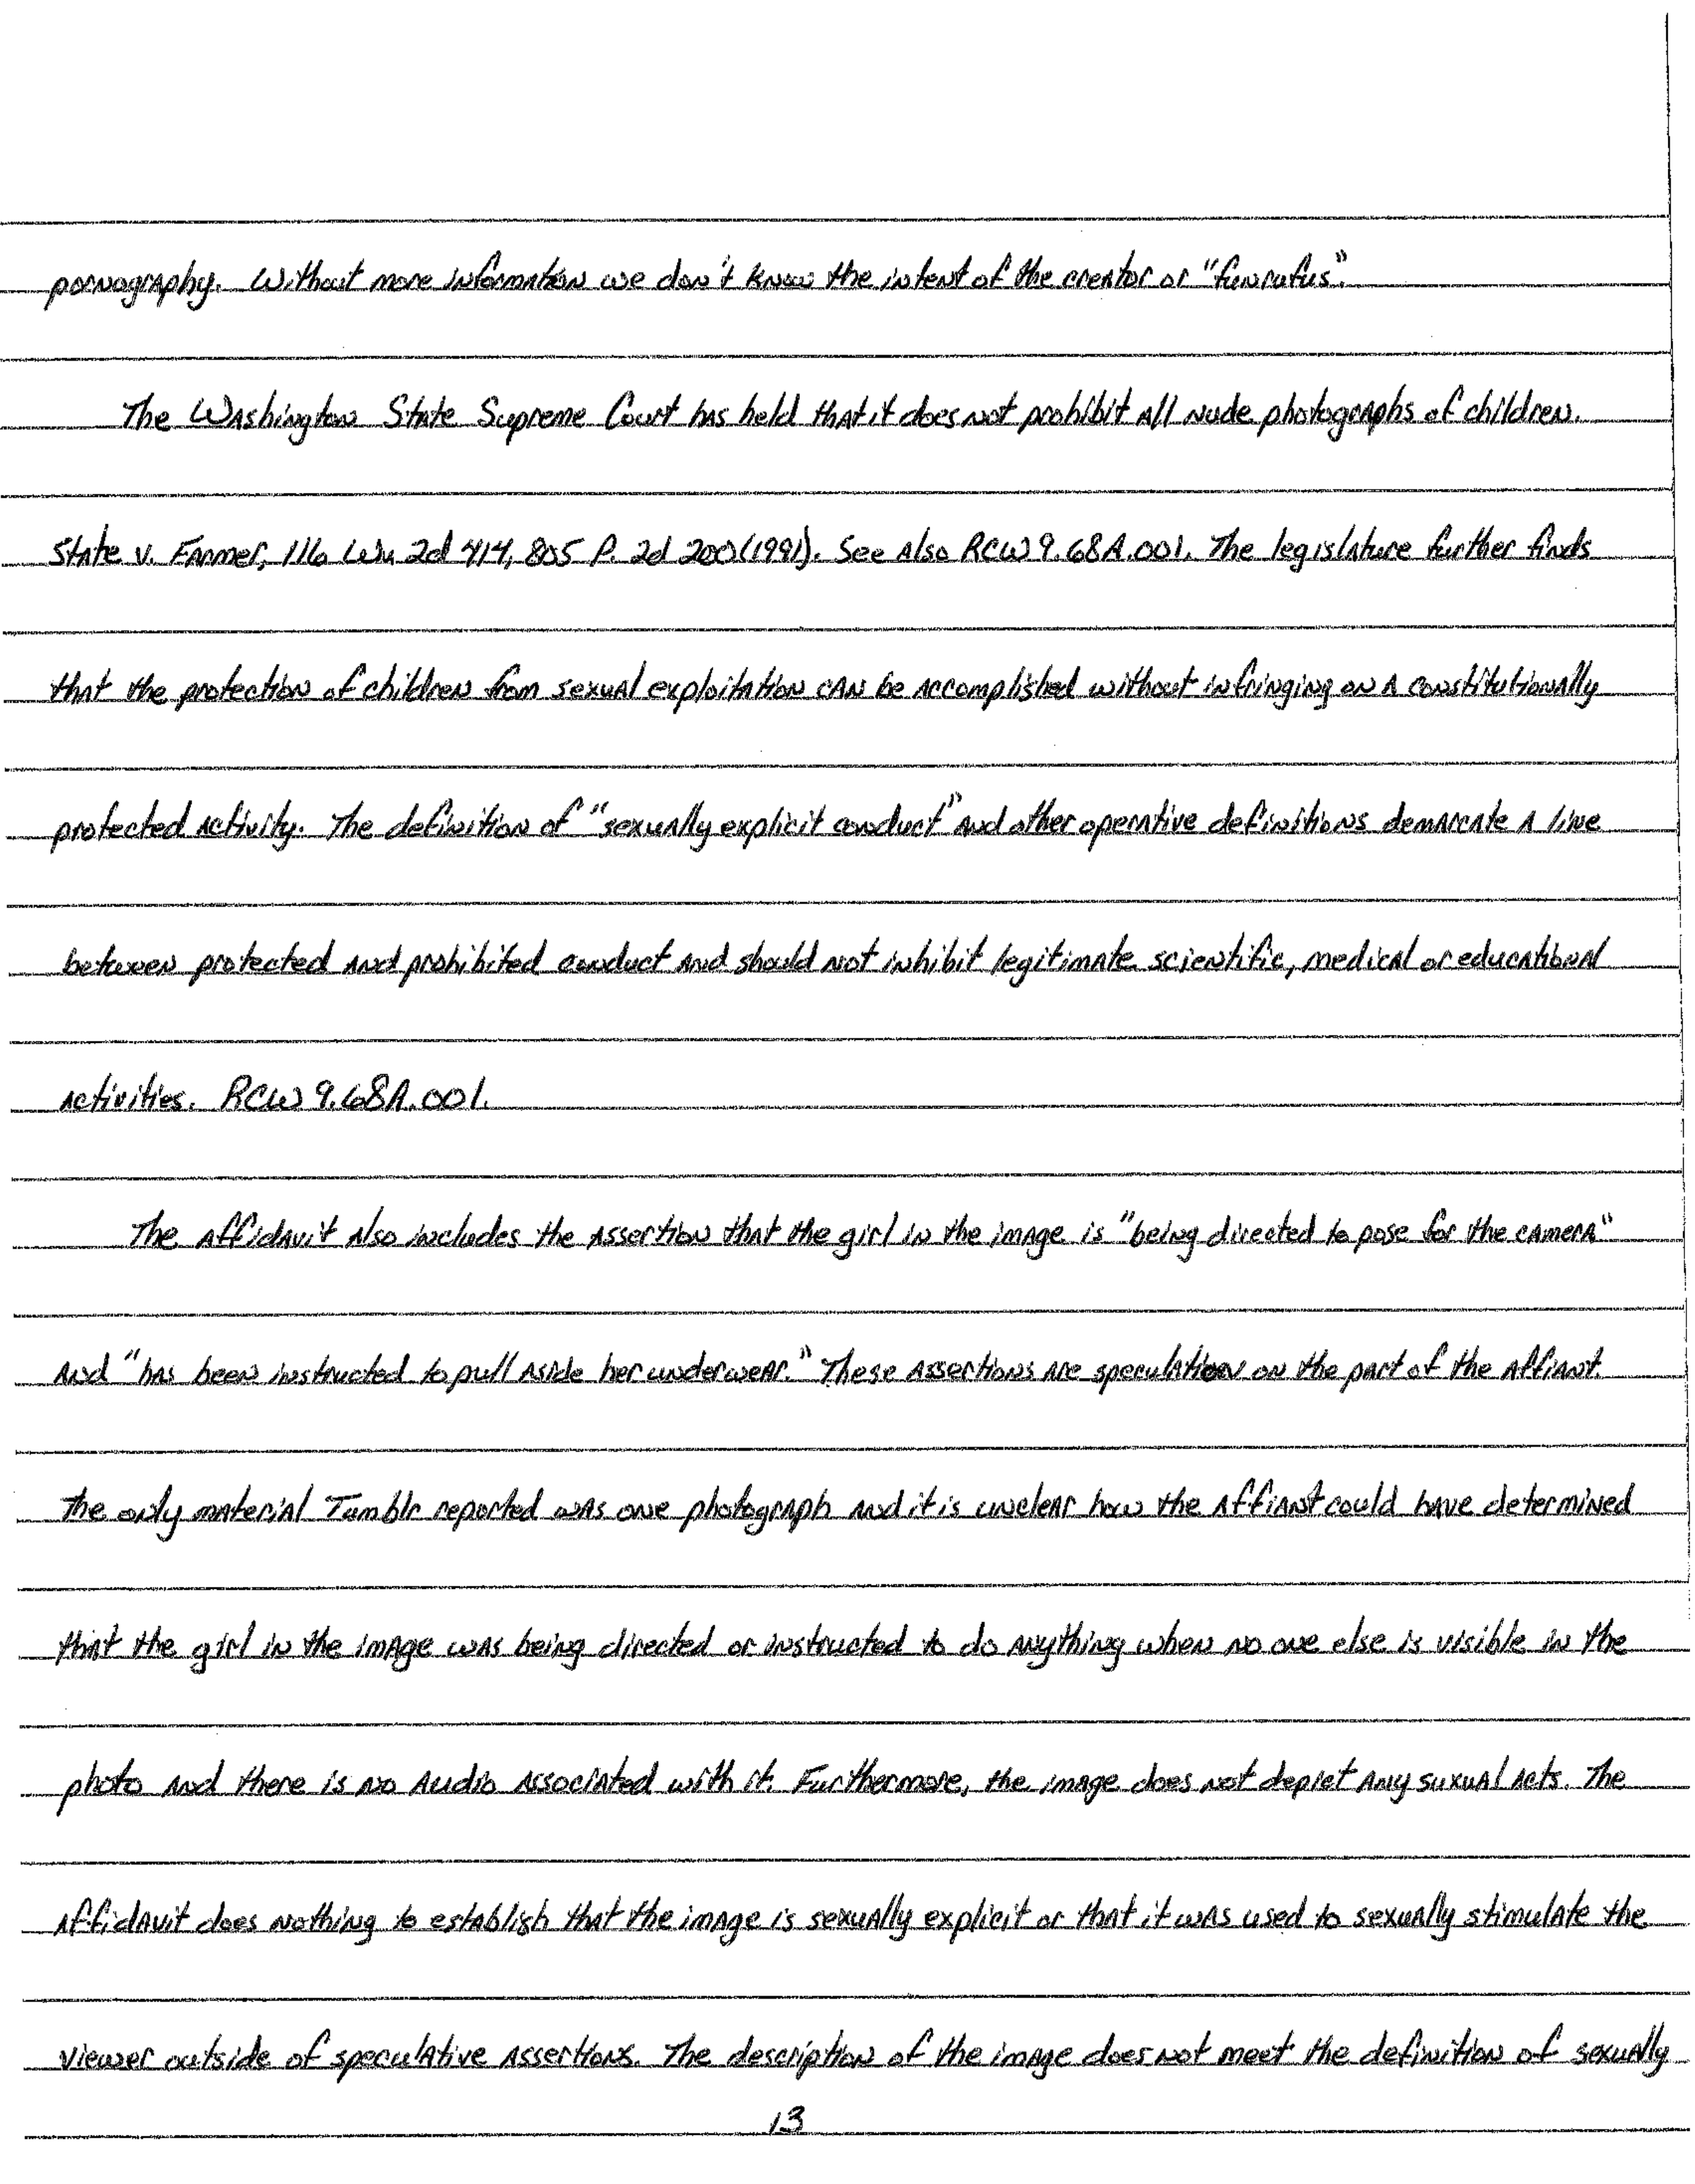 pornography. Without more information we don't know the intent of the creator or "funrufus".
The Washington State Supreme Court has held that it does not prohibit all nude photographs of children.
State v. Farmer, 116 Wn 2d 414, 805 P. 2d 200 (1991). See also RCW 9.68A.001. The legislature further finds
that the protection of children from sexual exploitation can be accomplished without infringing on a constitutionally
protected activity. The definition of "sexually explicit conduct" and other operative definitions demarcate a line
between protected and prohibited conduct and should not inhibit legitimate scientific, medical or educational
activities. RCW 9.68A.001.
The affidavit also includes the assertion that the girl in the image is "being directed to pose for the camera"
and "has been instructed to pull aside her underwear." These assertions are speculation on the part of the affiant.
The only material Tumblr reported was one photograph and it is unclear how the affiant could have determined
that the girl in the image was being directed or instructed to do anything when no one else is visible in the
photo and there is no audio associated with it. Furthermore, the image does not depict any suxual acts. The
affidavit does nothing to establish that the image is sexually explicit or that it was used to sexually stimulate the
viewer outside of speculative assertions. The description of the image does not meet the definition of sexually
13